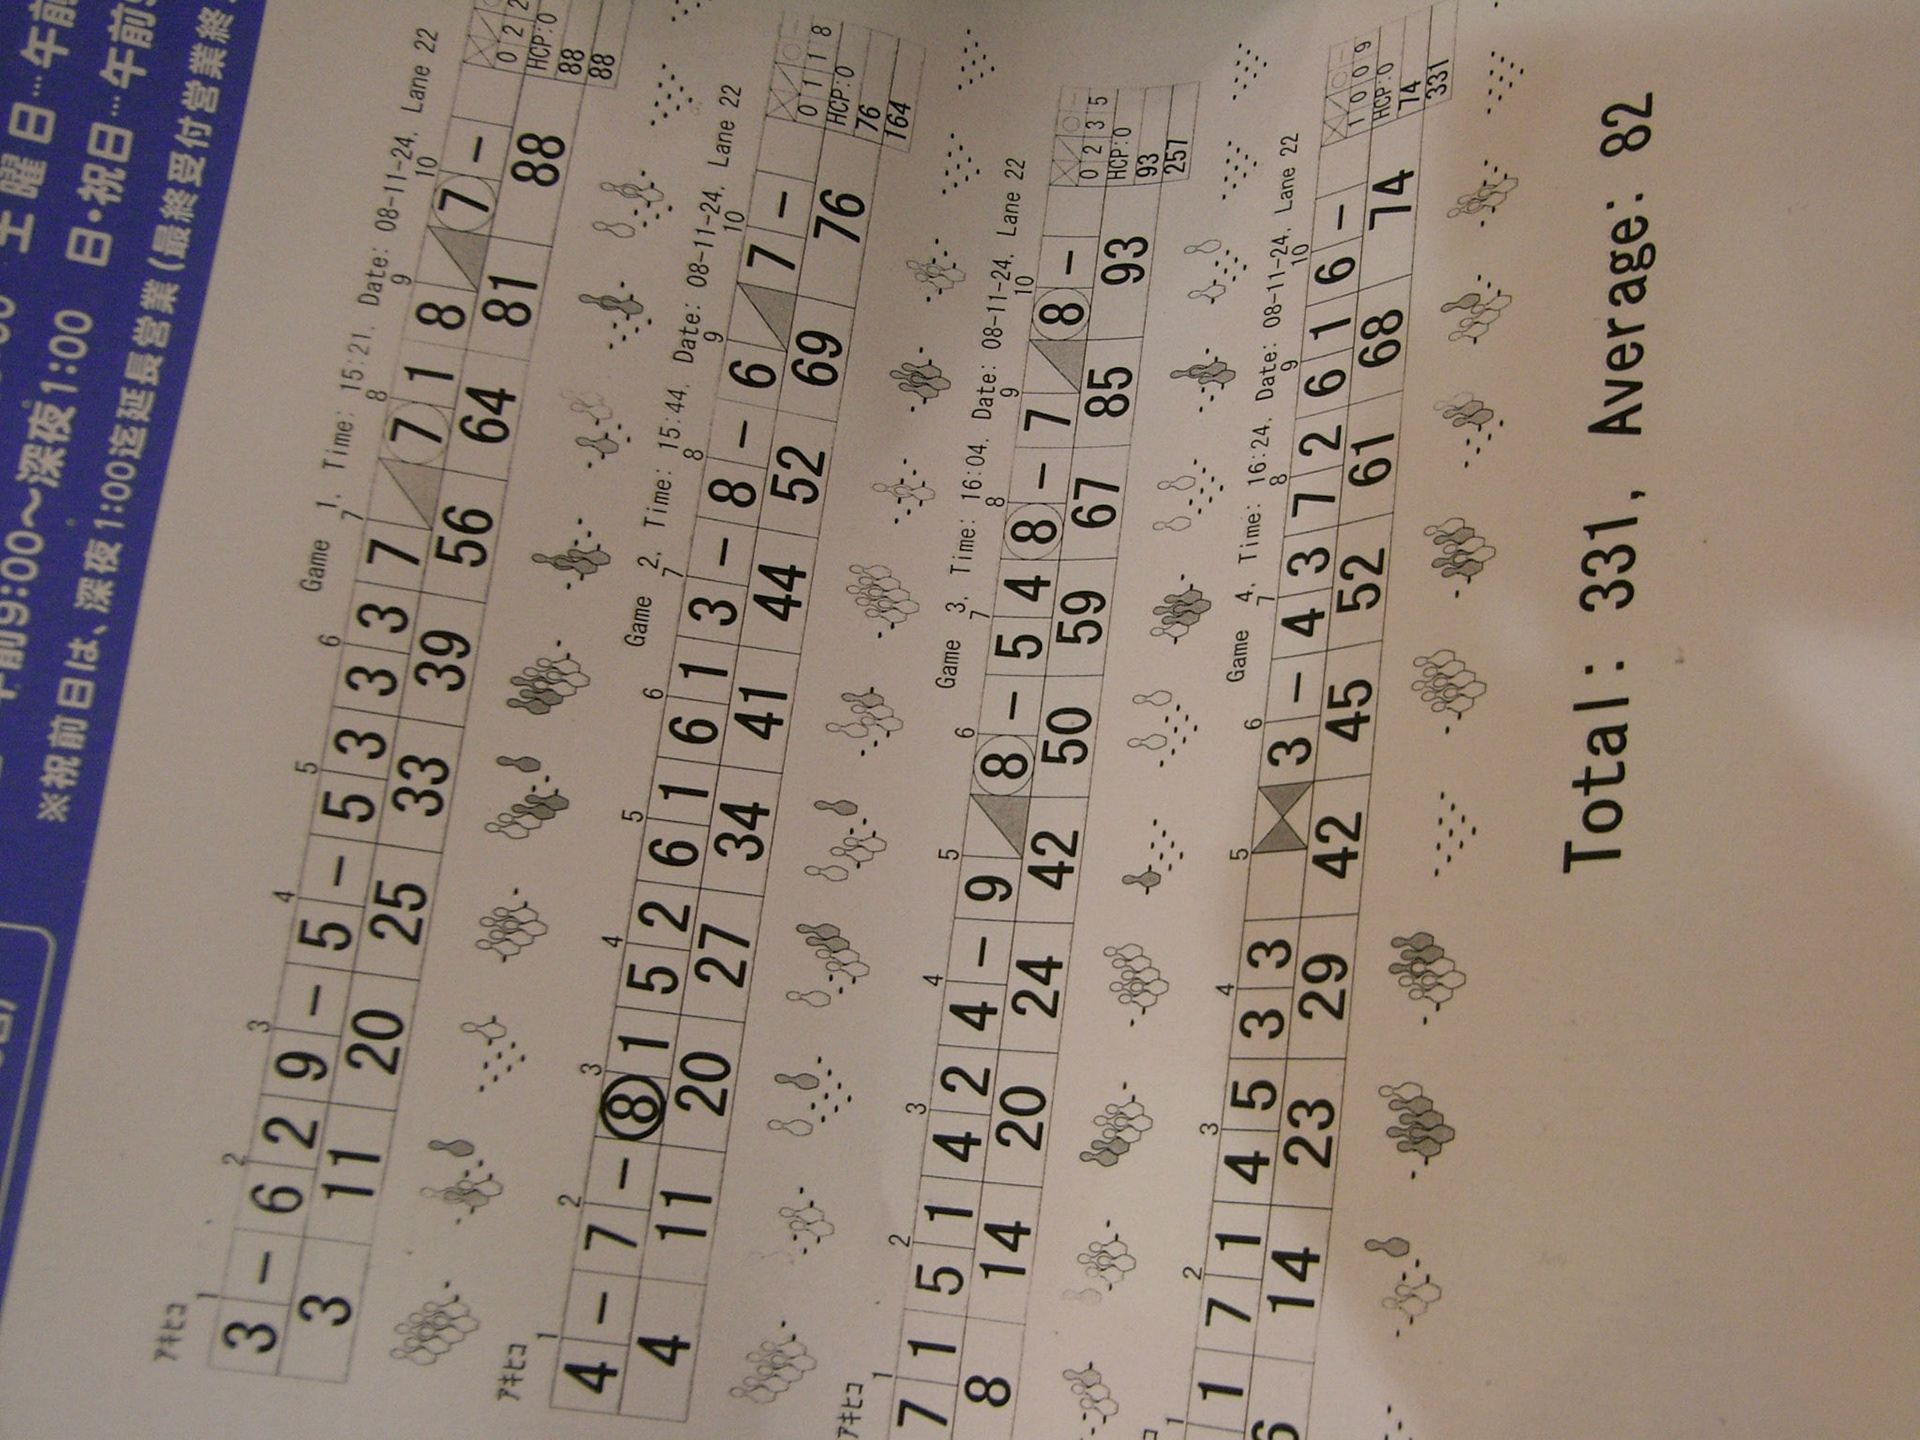 土曜日…午前
前9:00〜深夜1:00 日・祝日…午前
※祝前日は、深夜1:00迄延長営業(最終受付営業終
Game 1, Time: 15:21, Date: 08-11-24, Lane 22
アキヒコ
1 2 3 4 5 6 7 8 9 10
3 - 6 2 9 - 5 - 5 3 3 3 7 7 1 8 7 -
3 11 20 25 33 39 56 64 81 88
0 2 2
HCP:0
88
88
Game 2, Time: 15:44, Date: 08-11-24, Lane 22
アキヒコ
1 2 3 4 5 6 7 8 9 10
4 - 7 - 8 1 5 2 6 1 6 1 3 - 8 - 6 7 -
4 11 20 27 34 41 44 52 69 76
0 1 1 8
HCP:0
76
164
Game 3, Time: 16:04, Date: 08-11-24, Lane 22
アキヒコ
1 2 3 4 5 6 7 8 9 10
7 1 5 1 4 2 4 - 9 8 - 5 4 8 - 7 8 -
8 14 20 24 42 50 59 67 85 93
0 2 3 5
HCP:0
93
257
Game 4, Time: 16:24, Date: 08-11-24, Lane 22
コ
1 2 3 4 5 6 7 8 9 10
1 7 1 4 5 3 3 3 - 4 3 7 2 6 1 6 -
6 14 23 29 42 45 52 61 68 74
1 0 0 9
HCP:0
74
331
Total: 331, Average: 82